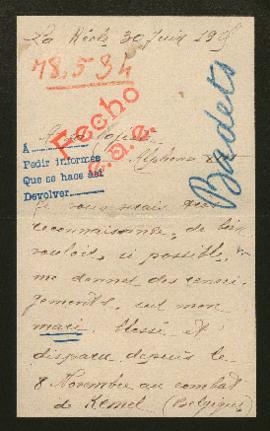 La Réole 30 Juin 195
78.534
Fecho
Badets
Alphonse
A
Pedir informes
Que se hace así
Devolver
Je vous serais
reconnaissante, de bien
vouloir, si possible,
me donner des rensei
gnements, sur mon
mari, blessé et
disparu depuis le
8 Novembre au combat
de Kemel (Belgique)